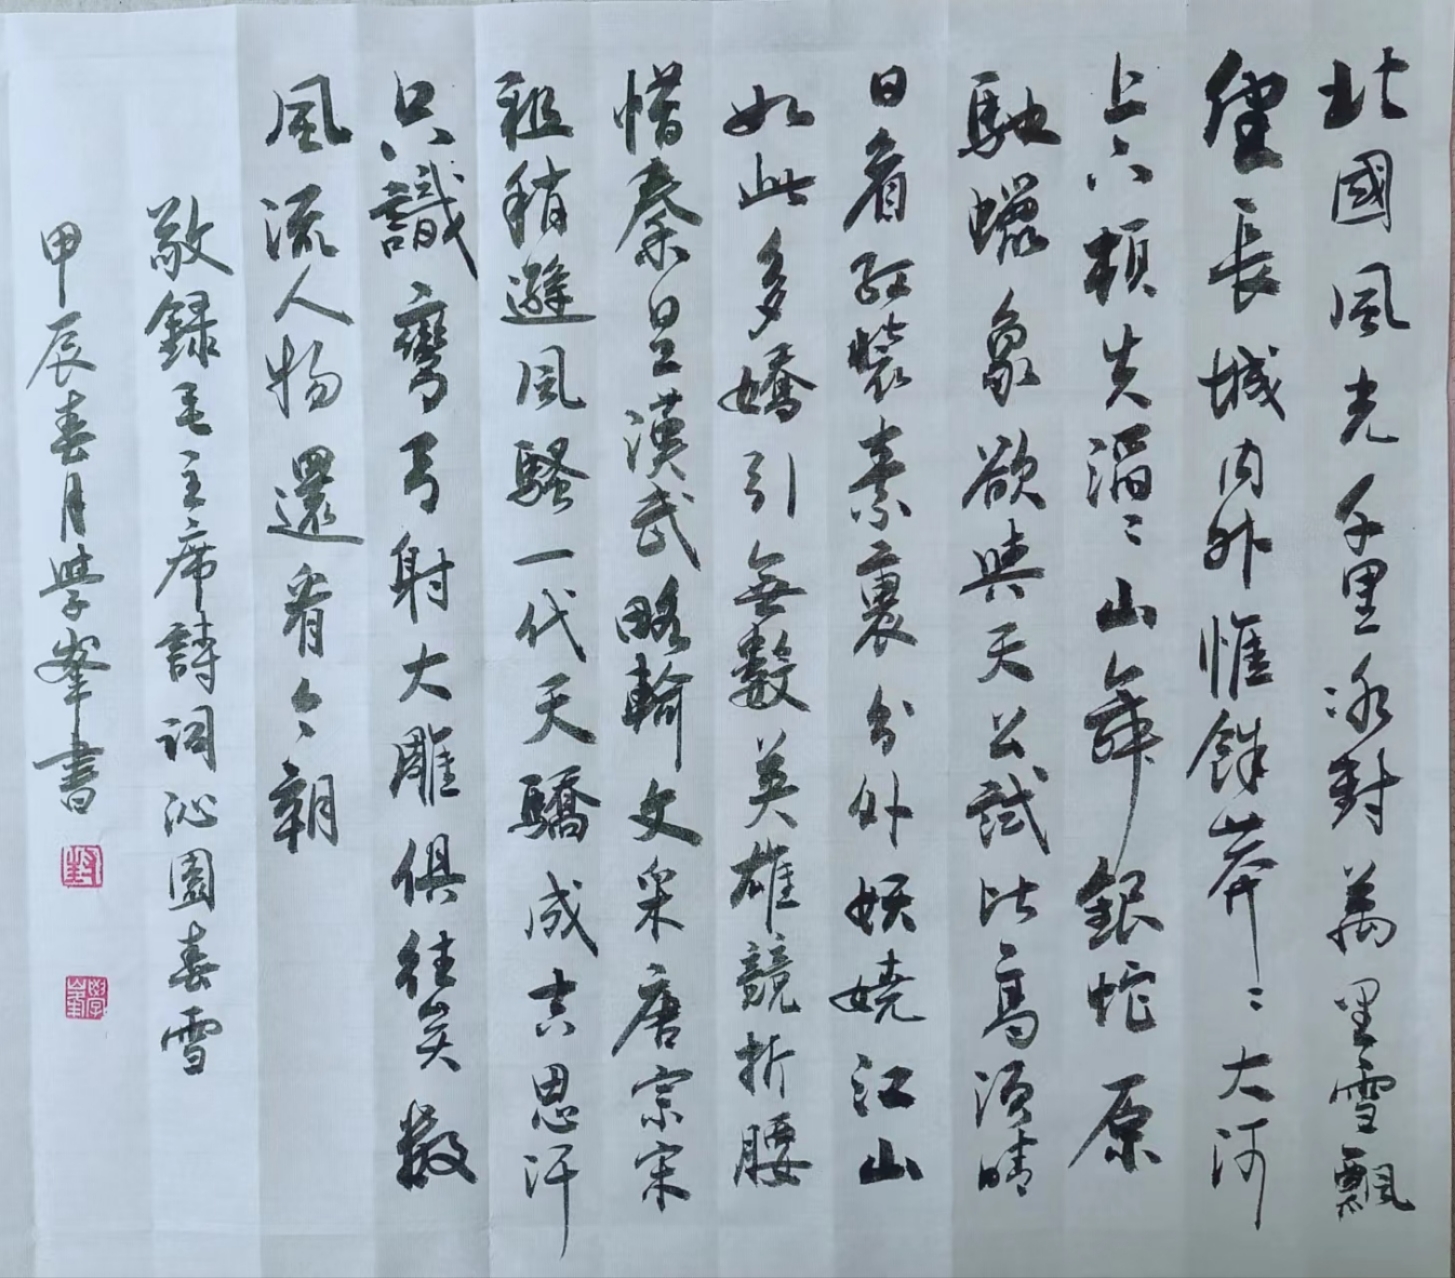 北國風光千里冰封萬里雪飄
望長城内外惟餘莽〻大河
上下頓失滔〻山舞銀蛇原
馳蠟象欲與天公試比高須晴
日看紅裝素裹分外妖嬈江山
如此多嬌引無數英雄競折腰
惜秦皇漢武略輸文采唐宗宋
祖稍遜風騷一代天驕成吉思汗
只識彎弓射大雕俱往矣數
風流人物還看今朝
敬録毛主席詩詞沁園春雪
甲辰春月學峯書
封
學峯